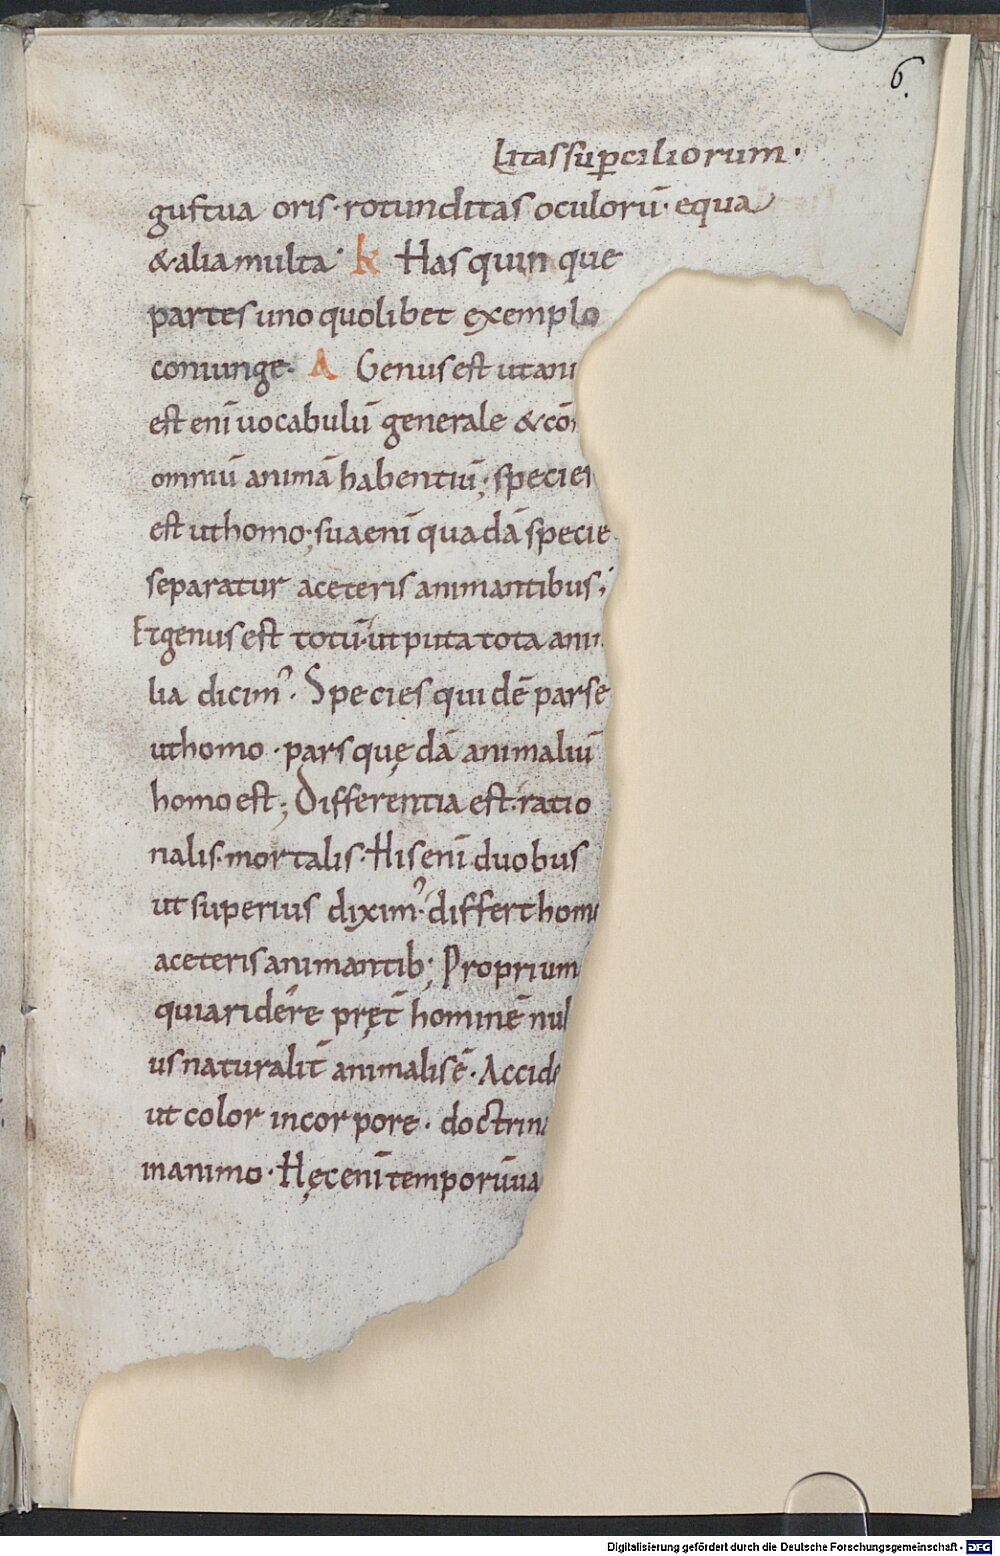 6.
litas sup̲ciliorum·
gustua oris· rotunditas oculorū· equa
& alia multa· k Has quinque
partes uno quolibet exemplo
coniunge· A Genus est ut ani
est enī uocabulū generale & cō
omniū animā habentiū; species
est ut homo; sua enī quadā specie
separatur a ceteris animantibus;
Et genus est totū· ut puta tota ani
lia dicim᾽· Species quidē pars e
ut homo · pars quędā animaliū
homo est; Differentia est· ratio
nalis· mortalis· His enī duobus
ut superius dixim᾽· differt homo
a ceteris animantib; Proprium
quia ridére pręt̄ hominē nul
us naturalit̄ animalis ē· Accide
ut color in corpore · doctrina
in animo· Hęc enī temporū ua
Digitalisierung gefördert durch die Deutsche Forschungsgemeinschaft - DFG